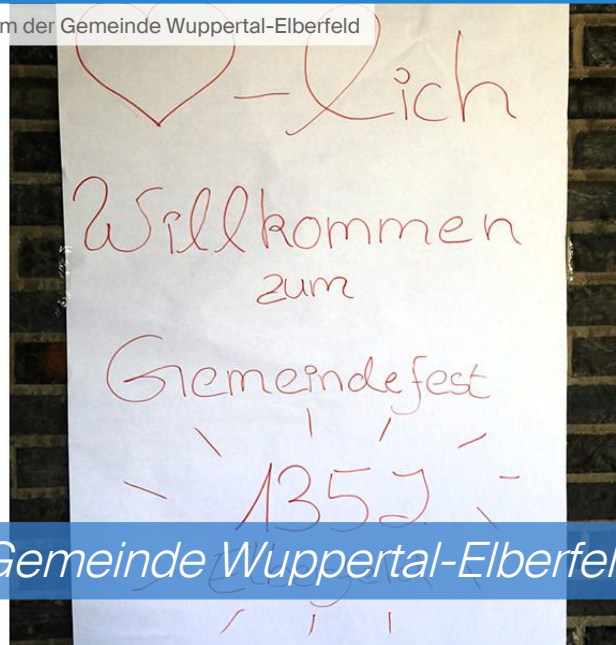 m der Gemeinde Wuppertal-Elberfeld
♡-lich
Willkommen
zum
Gemeindefest
135J
Gemeinde Wuppertal-Elberfel
Elberfeld